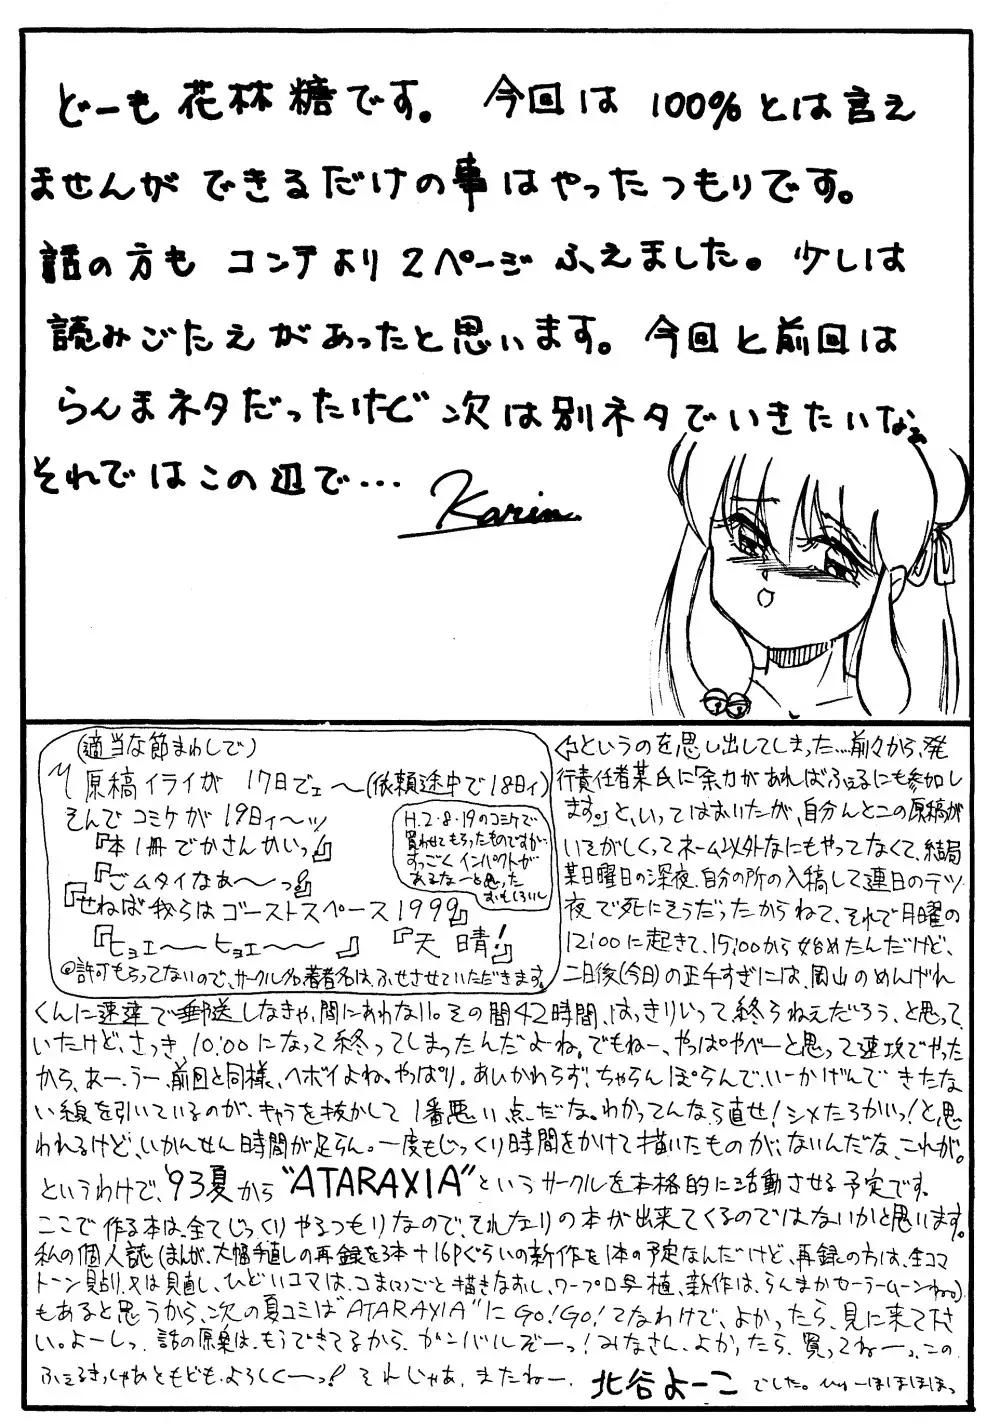 どーも 花林糖です。 今回は 100%とは言え
ませんが できるだけの事はやったつもりです。
話の方も コンテより2ページ ふえました。少しは
読みごたえがあったと思います。今回と前回は
らんまネタだったけど 次は別ネタでいきたいなぁ
それではこの辺で…
Karin
(適当な節まわしで)
原稿イライが 17日でェ〜(依頼途中で18日ィ)
そんで コミケが 19日ィ〜ッ
『本1冊でかさんめいっ』
『ごムタイなあ〜っ!』
『せねば 我らは ゴーストスペース1999』
『ヒョエ〜〜 ヒョエ〜〜 』 『天晴!』
H.2・8・19のコミケで
買わせてもらったものですが
すっごく インパクトが
あるなーと思った
おもしろいし
◎許可もらってないので、サークル名、著者名は、ふせさせていただきます。
⇦というのを思い出してしまった…前々から、発
行責任者某氏に「余力があればふぇるにも参加し
ます。」と、いってはおいたが、自分んとこの原稿が
いそがしくってネーム以外なにもやってなくて、結局
某日曜日の深夜、自分の所の入稿して連日のテツ
夜で死にそうだったからねて、それで月曜の
12:00に起きて、15:00から始めたんだけど、
二日後(今日)の正午すぎには、岡山のめんげれ
くんに速達で郵送しなきゃ、間にあわない。その間42時間、はっきりいって終らねえだろう、と思って
いたけど、さっき、10:00になって終ってしまったんだよね。でもねー、やっぱやべーと思って速攻でやった
から、あー、うー、前回と同様、ヘボイよね。やっぱり。あいかわらず、ちゃらんぽらんで、いーかげんで きたな
い線を引いているのが、キャラを抜かして 1番悪い点だな。わかってんなら直せ!シメたろかいっ!と、思
われるけど、いかんせん時間が足らん。一度もじっくり時間をかけて描いたものが、ないんだな、これが。
というわけで、'93夏から"ATARAXIA"というサークルを本格的に活動させる予定です。
ここで作る本は、全てじっくりやるつもりなので、それなりの本が出来てくるのではないかと思います。
私の個人誌(まんが、大幅手直しの再録を3本+16Pぐらいの新作を1本の予定なんだけど、再録の方は、全コマ
トーン貼り、又は見直し、ひどいコマは、コマごと描きなおし、ワープロ写植、新作は、らんまかセーラームーンねっ。)
もあると思うから、次の夏コミは"ATARAXIA"にGO!GO!てなわけで、よかったら、見に来て下さ
い。よーしっ、話の原案は、もうできてるから、ガンバルぞーっ!みなさん、よかったら、買ってねーっ、この
ふぇるきっしゅあともども、よろしくーっ! それじゃあ、またねー、 北谷よーこ でした。 ほほほほっ